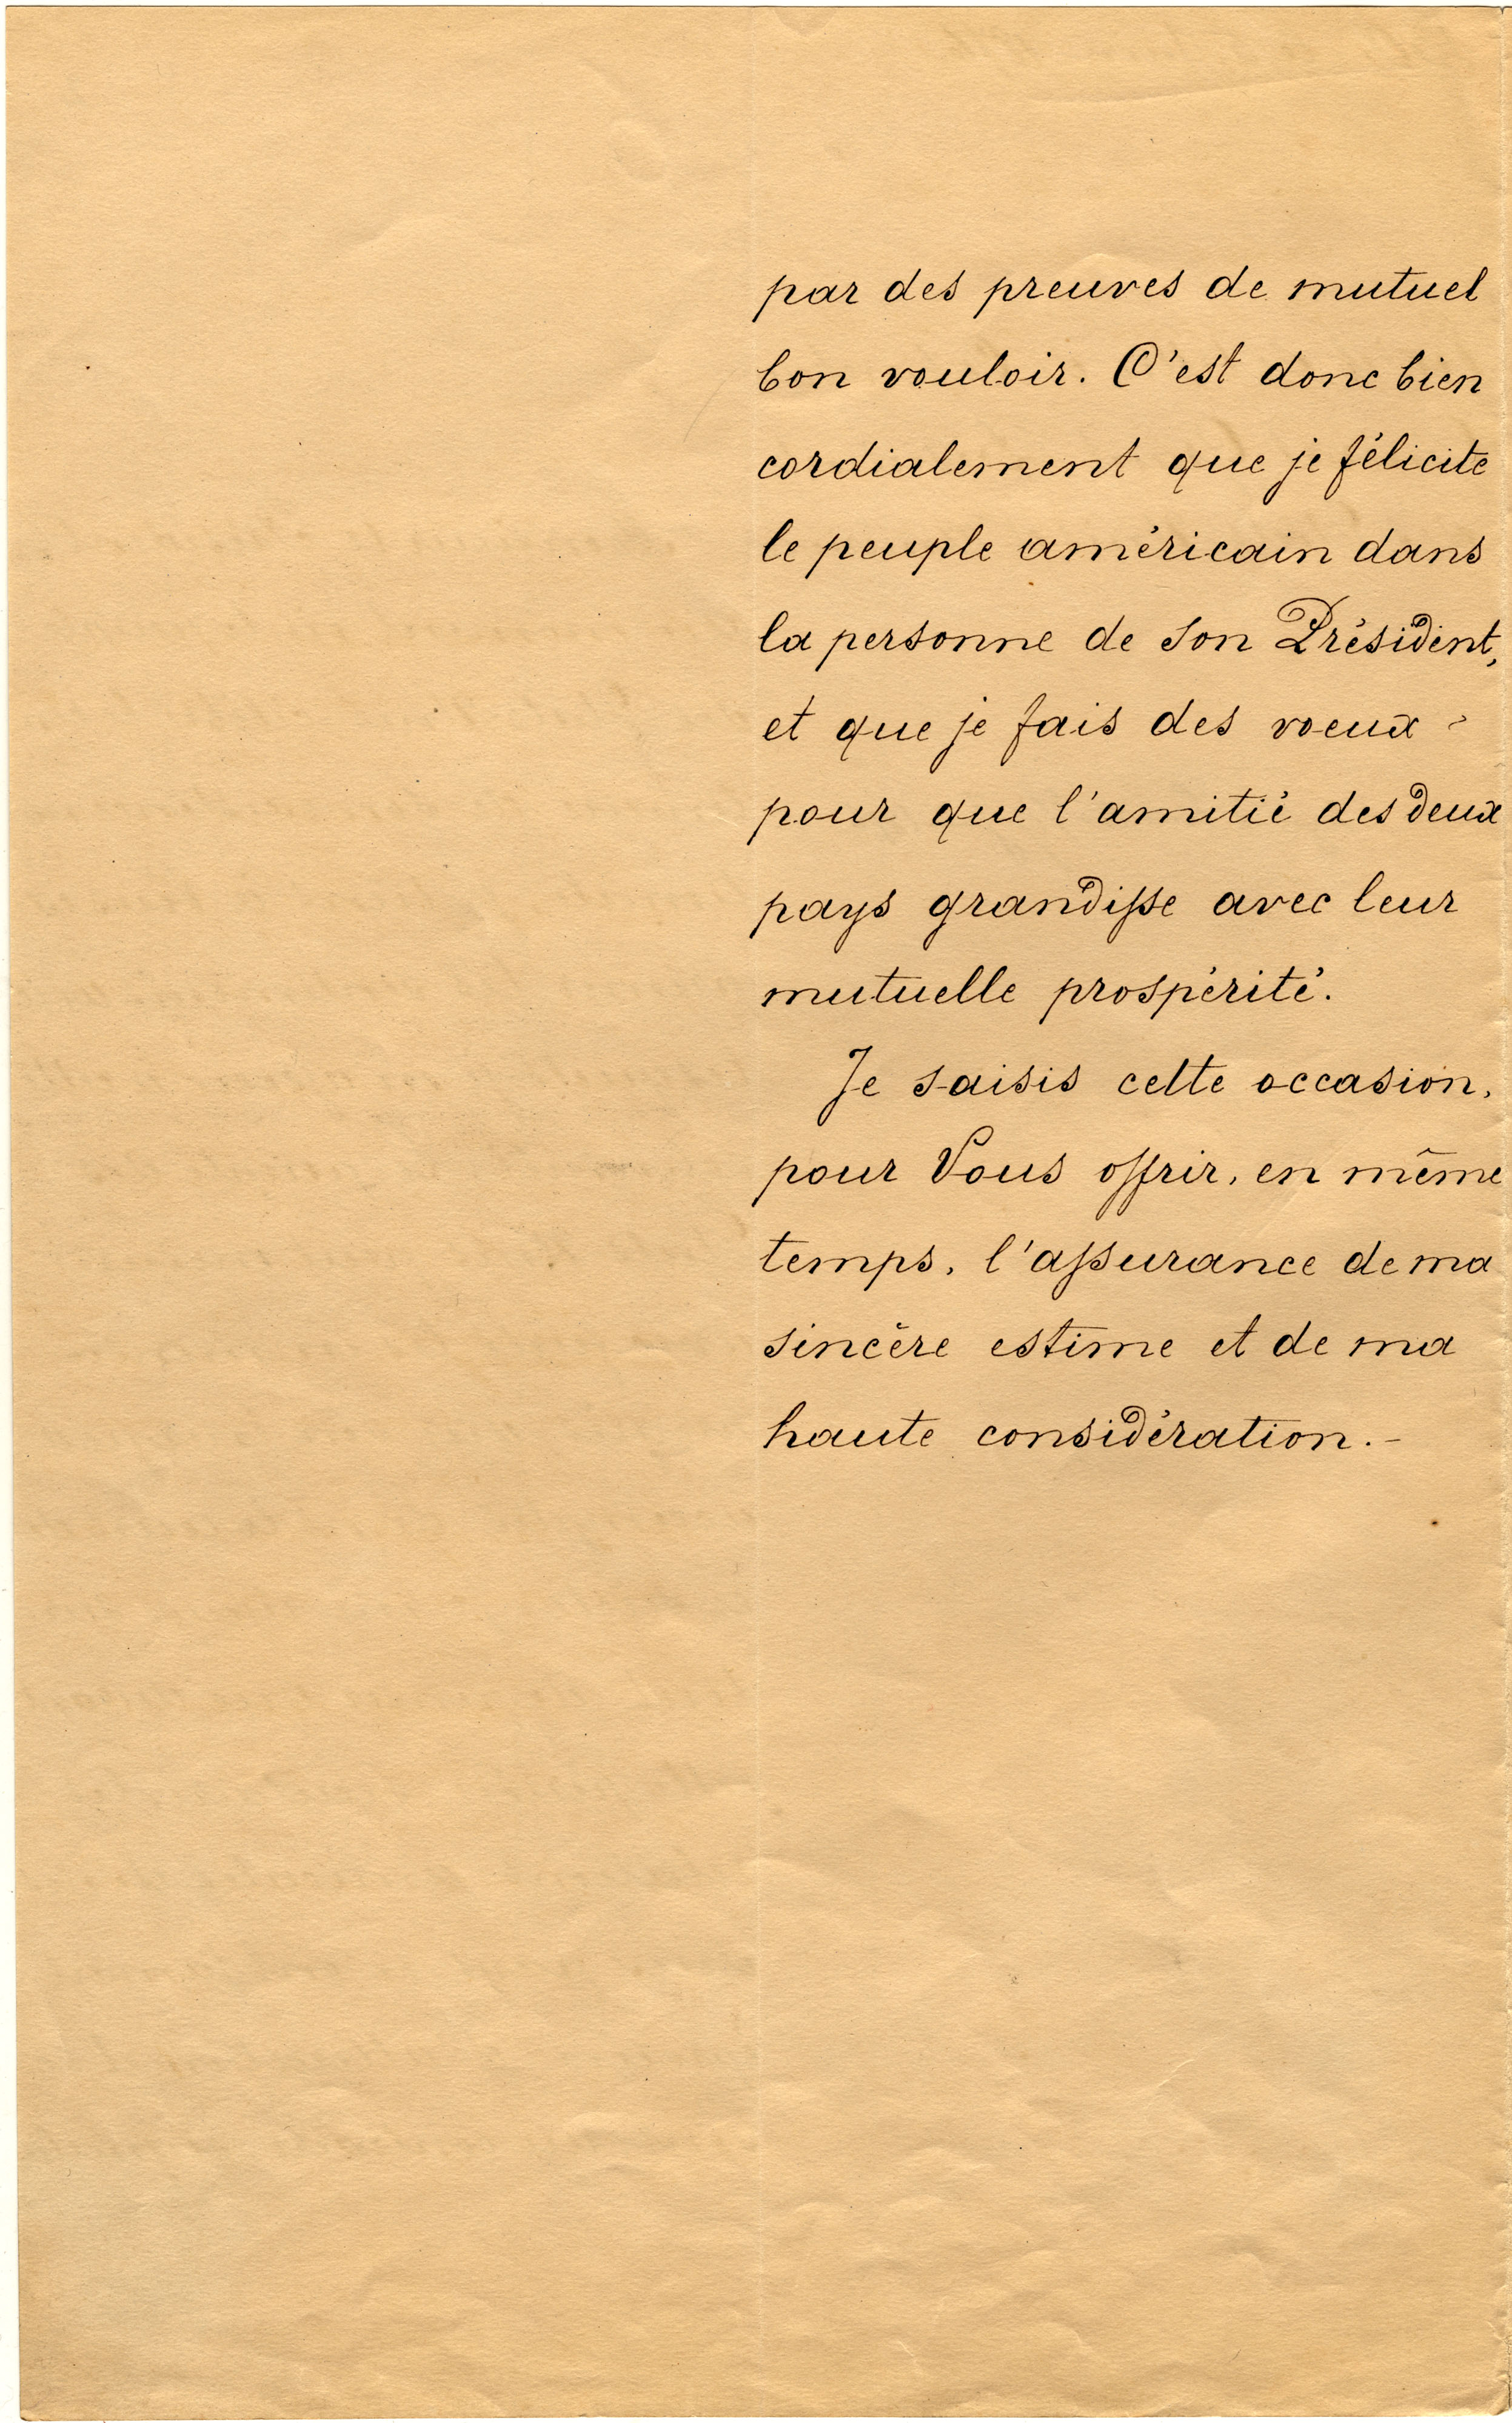 par des preuves de mutuel
bon vouloir. C'est donc bien
cordialement que je félicite
le peuple américain dans
la personne de Son Président,
et que je fais des voeux -
pour que l'amitié des deux
pays grandisse avec leur
mutuelle prospérité.
Je saisis cette occasion,
pour Vous offrir, en même
temps, l'assurance de ma
sincère estime et de ma
haute considération. -